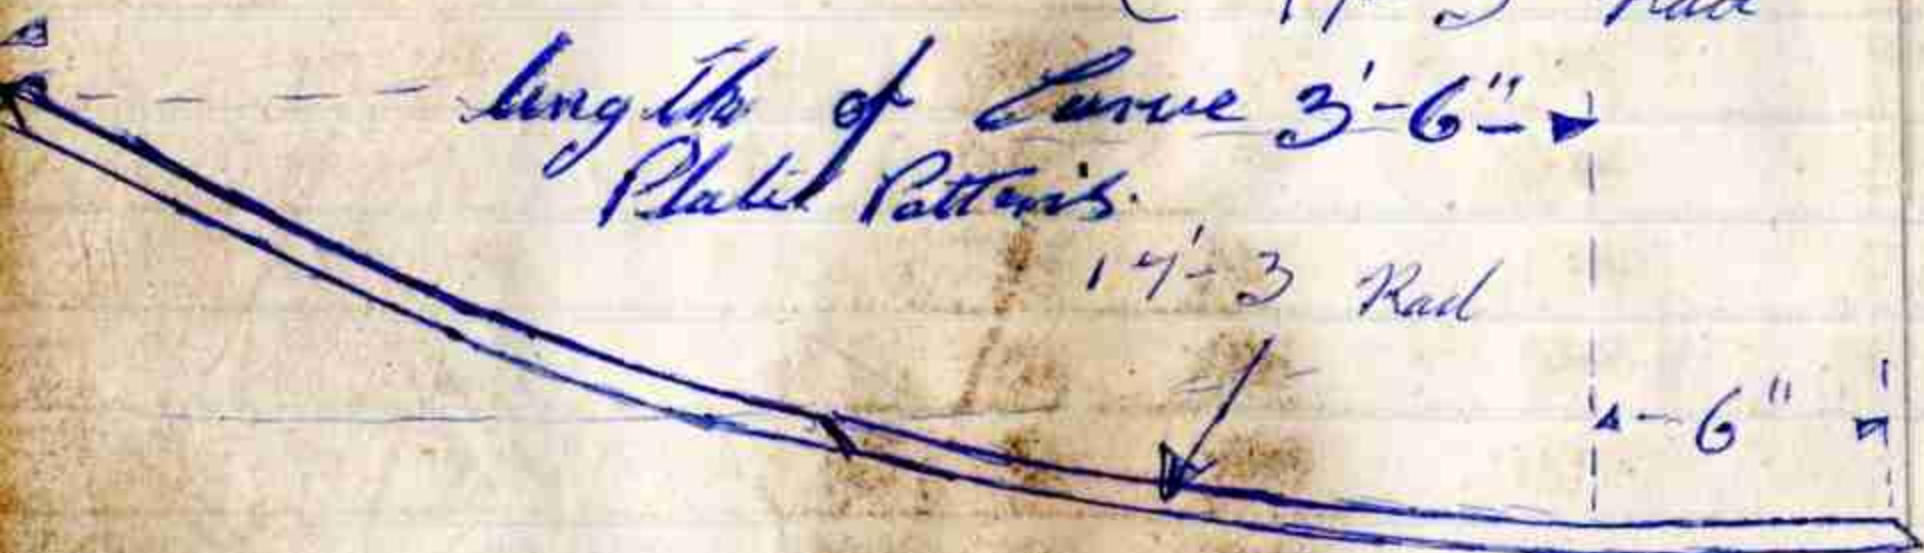 Rad
length of Curve 3'-6"
Plate Pattern's.
14'-3 Rad
6"